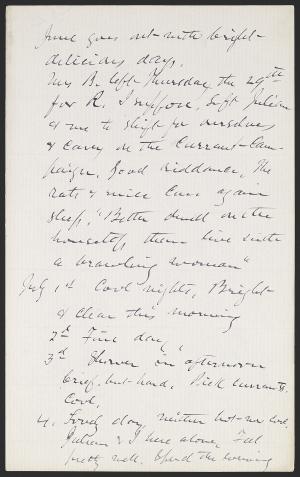 June goes out with bright
delicious days.
Mrs B. left Thursday the 29th
for R. I suppose, left Julian
& me to shift for ourselves
& carry on the Currant-Cam-
paign. Good riddance, The
rats & mice can again
sleep. "Better dwell on the
housetop than live with
a brawling woman"
July 1st Cool nights, Bright
& clear this morning
2d Fine day,
3d Shower in afternoon
brief but hard. Pick currants.
Cool.
4. Good day, neither hot nor cool.
Julian & I here alone, Feel
pretty well. Spend the evening